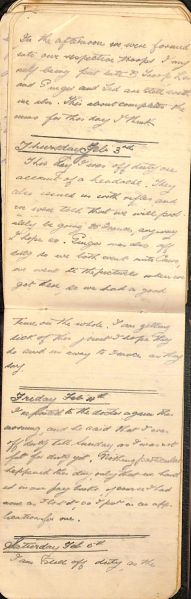 In the afternoon we were formed
into our respective troops I my
self being put into D Troop Les
and Ginger and Ted are there with
me also. This about completes the
news for this day I think.
Thursday Feb 3rd
This day I was off duty on
account of a headache. They
also issued us with rifles and
we were told that we will
be going to France, anyway
I hope so. Ginger was also off
duty so we both went into
we went to the pictures when we
got there so we had a good
time on the whole. I am getting
sick of this joint I hope they
do send us away to France as they
say.
Friday Feb 4th
I reported to the doctor again this
morning and he said that I was
off duty till Sunday as I was not
fit for duty yet. Nothing particular
happened this day only that we handed
in our pay books, of course I had
none as I lost it, so I put in an app
lication for one.
Saturday Feb 5th
I am still off duty, in the